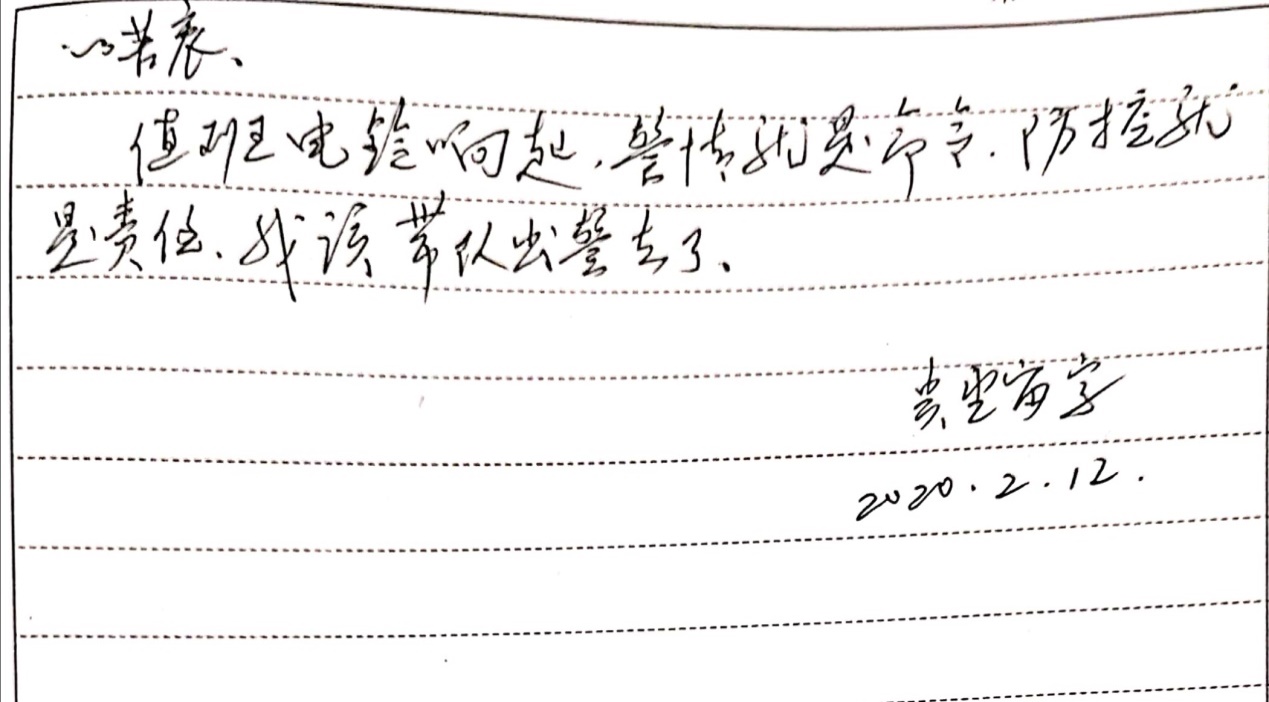 的苦衷、
值班电铃响起,警情就是命令.防控就
是责任、我该带队出警去了、
留字
2020.2.12.